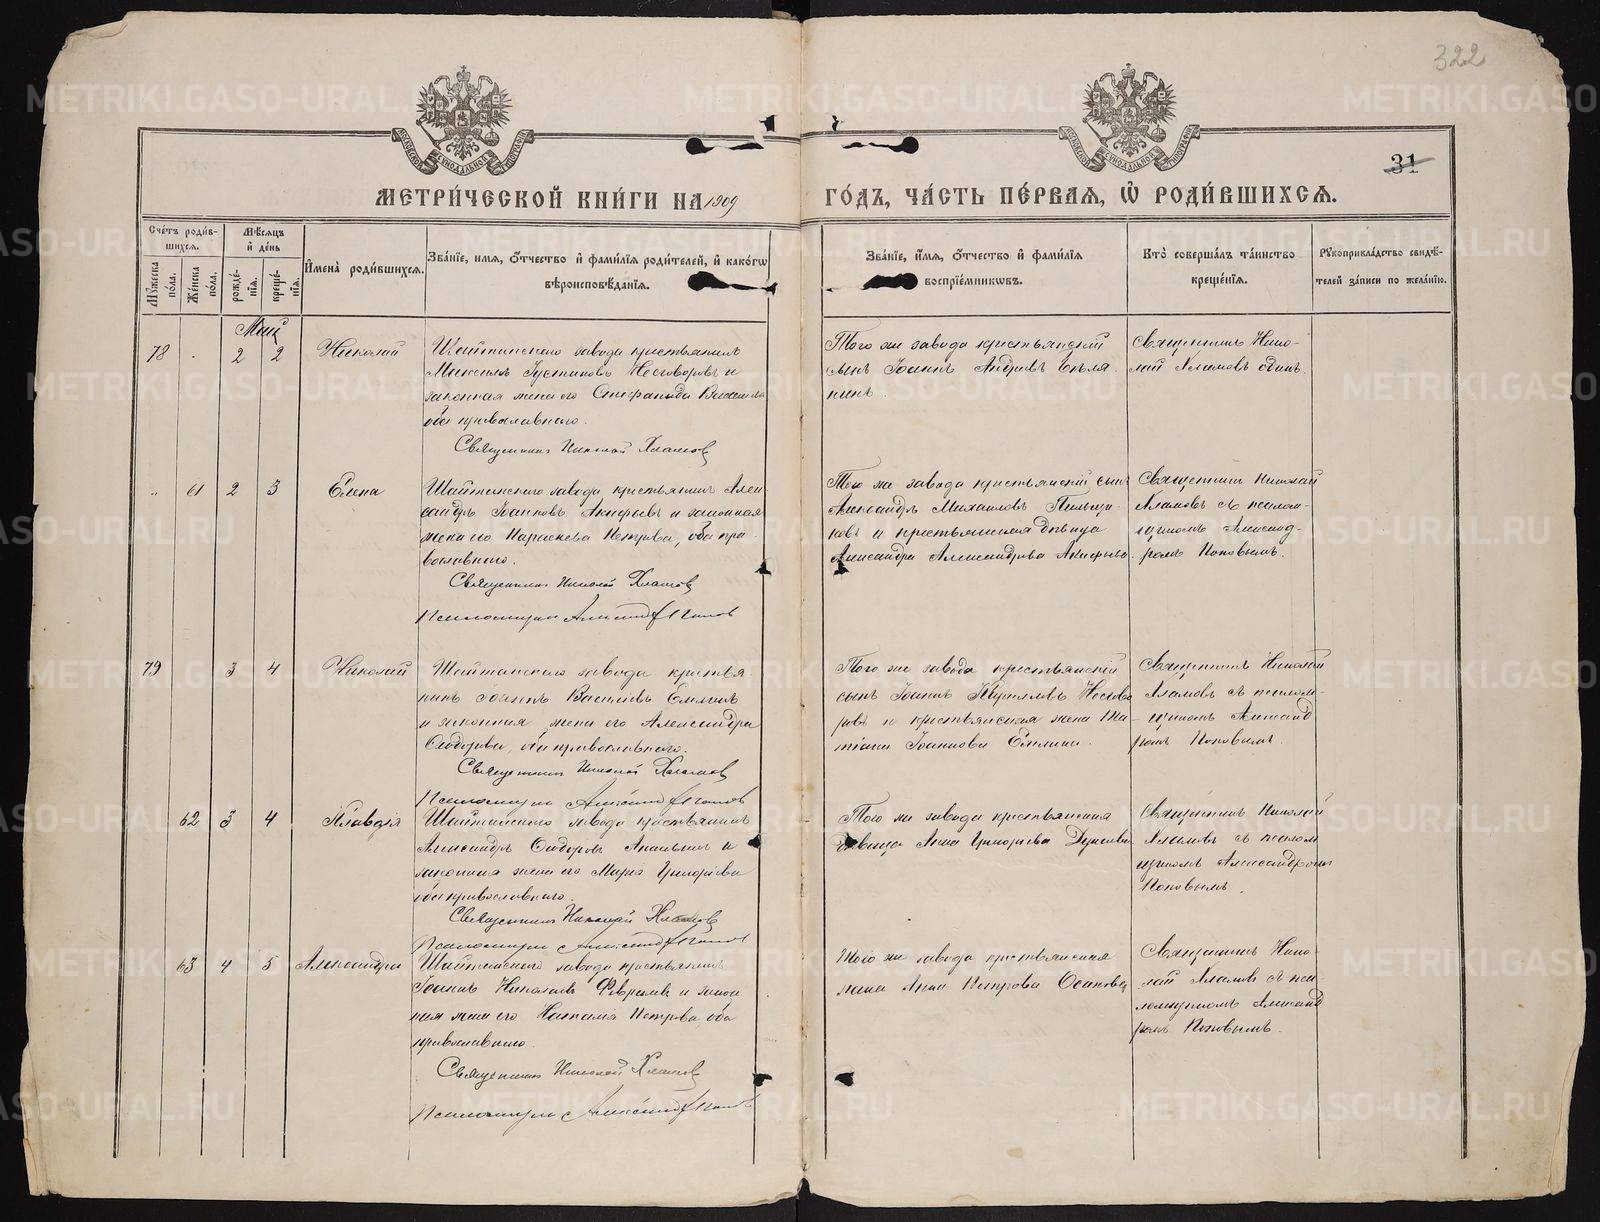 322
31
МЕТРИ́ЧЕСКОЙ КНИ́ГИ НА 1909
ГО́ДЪ, ЧА́СТЬ ПЕ́РВАЯ, Ѡ҆ РОДИ́ВШИХСЯ.
Сче́тъ роди́в-
шихся.
Мѣ́сяцъ
и҆ де́нь
Мꙋ́жеска
по́ла.
Же́нска
по́ла.
рожде́-
нїя.
креще́-
нїя.
И҆мена̀ роди́вшихся.
Зва́нїе, и҆́мя, ѻ҆́тчество и҆ фами́лїя роди́телей, и҆ како́гѡ
вѣроисповѣ́данїя.
Зва́нїе, и҆́мя, ѻ҆́тчество и҆ фами́лїя
воспрїе́мникѡвъ.
Кто̀ соверша́лъ та́инство
креще́нїя.
Рꙋкоприкла́дство свидѣ́-
телей за́писи по жела́нїю.
Май
78
2
2
Николай
Шайтанскаго завода крестьянинъ
Максимъ Іустиновъ Несговоровъ и
законная жена его Стефанида
оба православнаго.
Священникъ Николай Хламов
Того же завода крестьянскій
сынъ Іоаннъ Андреевъ
Священникъ Нико-
лай Хламовъ одинъ.
61
2
3
Елена
Шайтанскаго завода крестьянинъ Алек-
сандръ Іоанновъ Акифьевъ и законная
жена его Параскева Петрова, оба пра-
вославнаго.
Священникъ Николай Хламов
Псаломщик Александр Попов
Того же завода крестьянскій сынъ
Александръ Михаиловъ
и крестьянская дѣвица
Александра Александрова Акифьева
Священникъ Николай
Хламовъ съ псалом-
щикомъ Александ-
ромъ Поповымъ.
79
3
4
Николай
Шайтанскаго завода крестья-
нинъ Іоаннъ Васильевъ Емлинъ
и законная жена его Александра
Ѳеодорова, оба православнаго.
Священникъ Николай Хламов
Псаломщик Александр Попов
Того же завода крестьянскій
сынъ Іоаннъ Кирилловъ Несгово-
ровъ и крестьянская жена Та-
тіана Іоаннова Емлина.
Священникъ Николай
Хламовъ съ псалом-
щикомъ Александ-
ромъ Поповымъ.
62
3
4
Клавдія
Шайтанскаго завода крестьянинъ
Александръ Сидоровъ Ананьинъ и
законная жена его Марѳа Григорьева
оба православнаго.
Священникъ Николай Хламов
Псаломщик Александр Попов
Того же завода крестьянская
дѣвица Анна Григорьева
Священникъ Николай
Хламовъ съ псалом-
щикомъ Александромъ
Поповымъ.
63
4
5
Александра
Шайтанскаго завода крестьянинъ
Іоаннъ Николаевъ Февралевъ и закон-
ная жена его Наталія Петрова оба
православнаго.
Священникъ Николай Хламов
Псаломщик Александр Попов
Того же завода крестьянская
жена Анна Петрова Осипова
Священникъ Нико-
лай Хламовъ съ пса-
ломщикомъ Александ-
ромъ Поповымъ.
METRIKI.GASO-URAL.RU